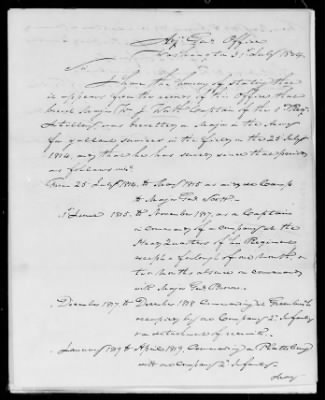 Adj. Genl. Office
Washington 31 July 1824.
Sir,
I have the honour of stating that
it appears from the records of this Office that
brevet Major W. J. Worth Captain of the 1st Regt.
Artillery, was brevetted a Major in the Army
for gallant services in the field, on the 25 July
1814, and that he has served since that period
as follows viz.
From 25 July 1814 to May 1815 as Aid de Camp
to Major Genl Scott—
" June 1815 to November 1817, as a Captain
in command of a company at the
Head Quarters of his Regiment,
except a furlough of one month &
two months absence on command
with Major Genl Brown.
" December 1817 to December 1818 Commanding at
occupied by one Company 2d Infantry
& a detachment of recruits.
" January 1819 to April 1819, Commanding at Plattsburg
with one company 2d Infantry.